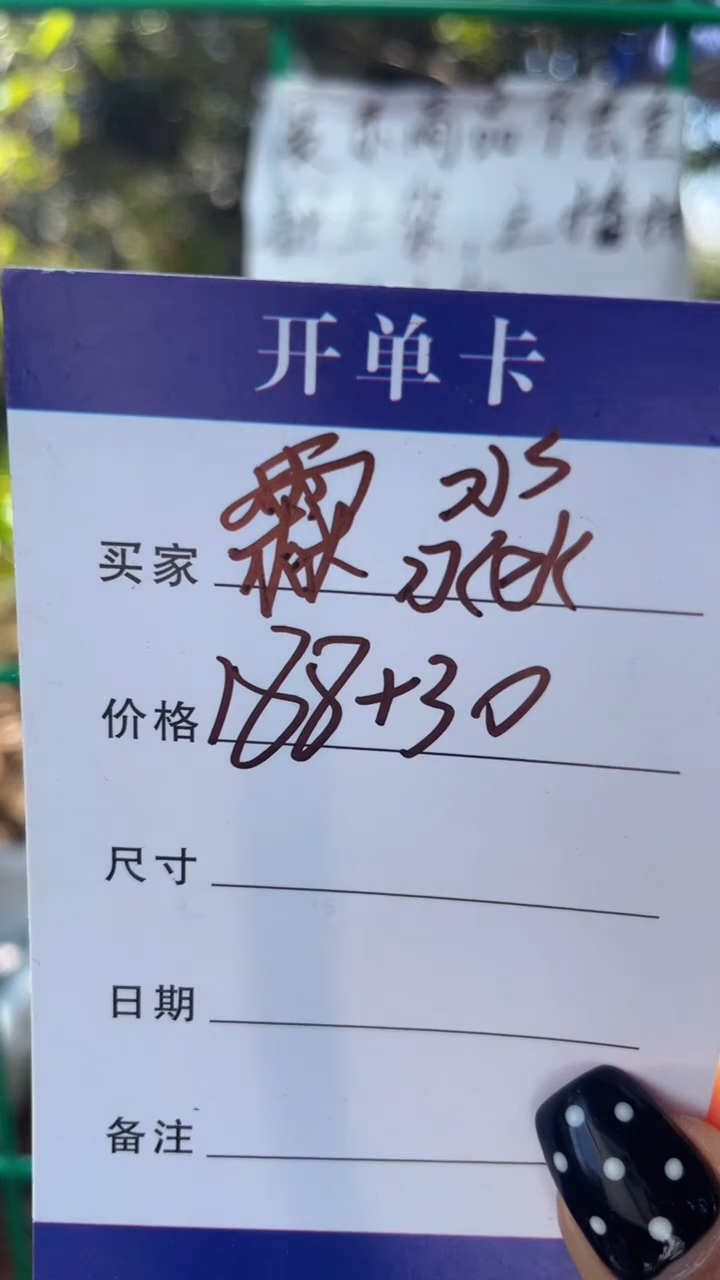 开单卡
买家 霖淼
价格 188+30
尺寸
日期
备注